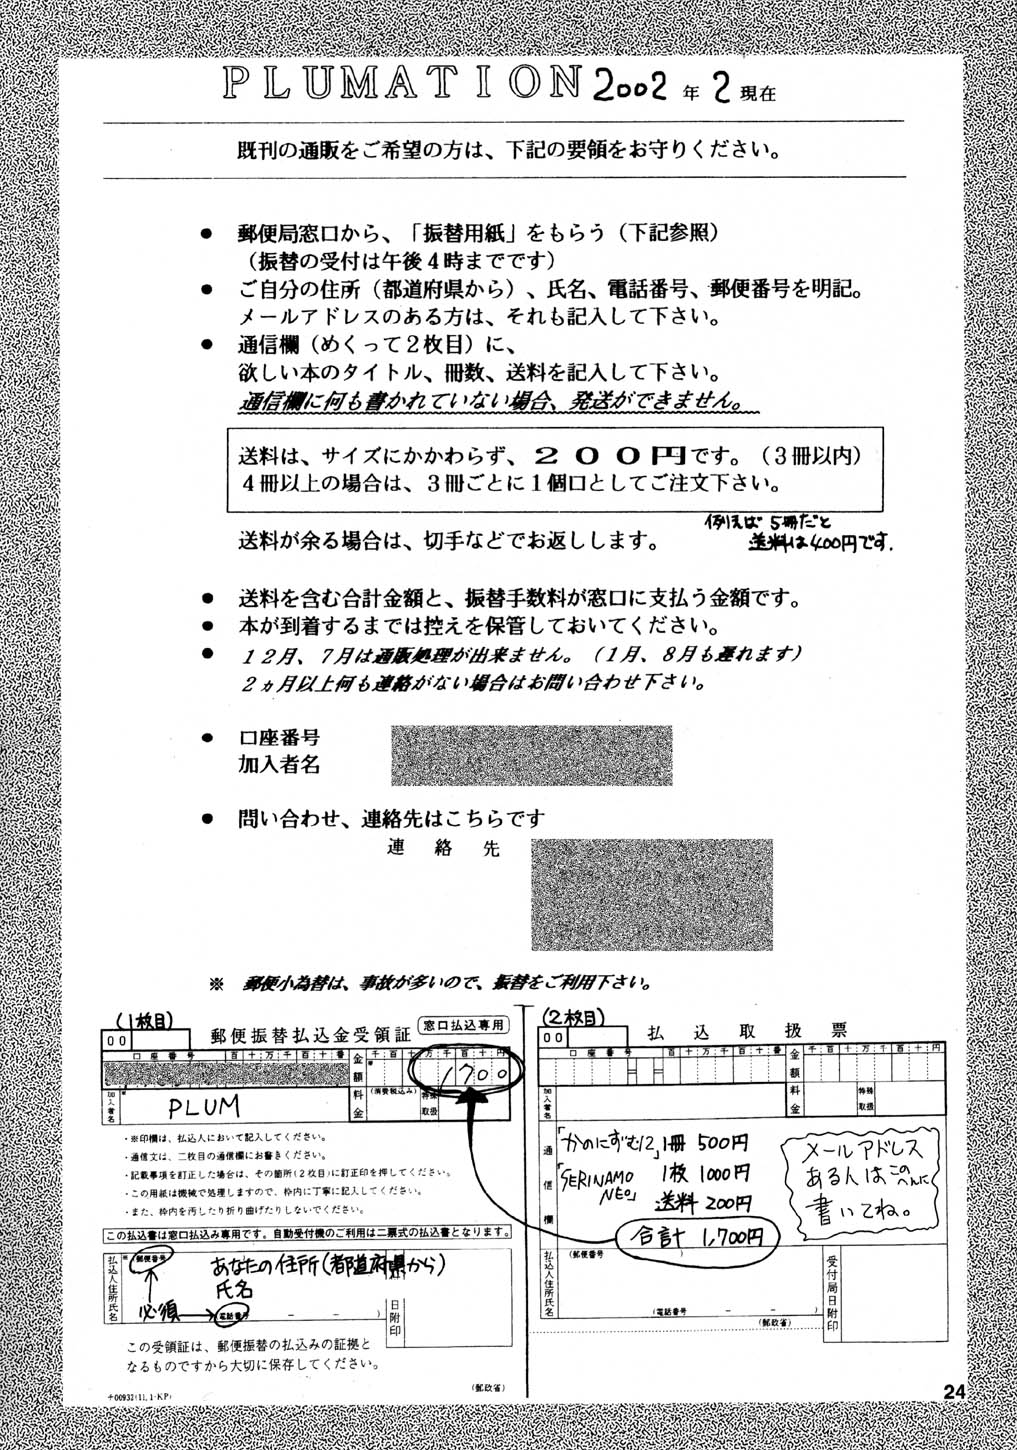 PLUMATION 2002年 2現在
既刊の通販をご希望の方は、下記の要領をお守りください。
● 郵便局窓口から、「振替用紙」をもらう（下記参照）
（振替の受付は午後４時までです）
● ご自分の住所（都道府県から）、氏名、電話番号、郵便番号を明記。
メールアドレスのある方は、それも記入して下さい。
● 通信欄（めくって２枚目）に、
欲しい本のタイトル、冊数、送料を記入して下さい。
通信欄に何も書かれていない場合、発送ができません。
送料は、サイズにかかわらず、２００円です。（３冊以内）
４冊以上の場合は、３冊ごとに１個口としてご注文下さい。
例えば 5冊だと
送料が余る場合は、切手などでお返しします。
送料は400円です.
● 送料を含む合計金額と、振替手数料が窓口に支払う金額です。
● 本が到着するまでは控えを保管しておいてください。
● １２月、７月は通販処理が出来ません。（１月、８月も遅れます）
２ヵ月以上何も連絡がない場合はお問い合わせ下さい。
● 口座番号
加入者名
● 問い合わせ、連絡先はこちらです
連 絡 先
※ 郵便小為替は、事故が多いので、振替をご利用下さい。
(1枚目)
00
郵便振替払込金受領証
窓口払込専用
口座番号 百十万千百十番
金額
千百十万千百十円
1700
加入者名
PLUM
料金
(消費税込み)
特殊取扱
・※印欄は、払込人において記入してください。
・通信文は、二枚目の通信欄にお書きください。
・記載事項を訂正した場合は、その箇所(2枚目)に訂正印を押してください。
・この用紙は機械で処理しますので、枠内に丁寧に記入してください。
・また、枠内を汚したり折り曲げたりしないでください。
この払込書は窓口払込み専用です。自動受付機のご利用は二票式の払込書となります。
払込人住所氏名
※
(郵便番号)
あなたの住所(都道府県から)
氏名
必須
(電話番号 － － )
日附印
この受領証は、郵便振替の払込みの証拠と
なるものですから大切に保存してください。
(郵政省)
(2枚目)
00
払込取扱票
口座番号 百十万千百十番
金額
千百十万千百十円
加入者名
料金
特殊取扱
通信欄
「かのにずむ12」1冊 500円
「SERINAMO NEO」 1枚 1000円
送料 200円
合計 1,700円
メールアドレス
ある人はこのへんに
書いてね。
払込人住所氏名
(郵便番号 )
(電話番号 － － )
(郵政省)
受付局日附印
24